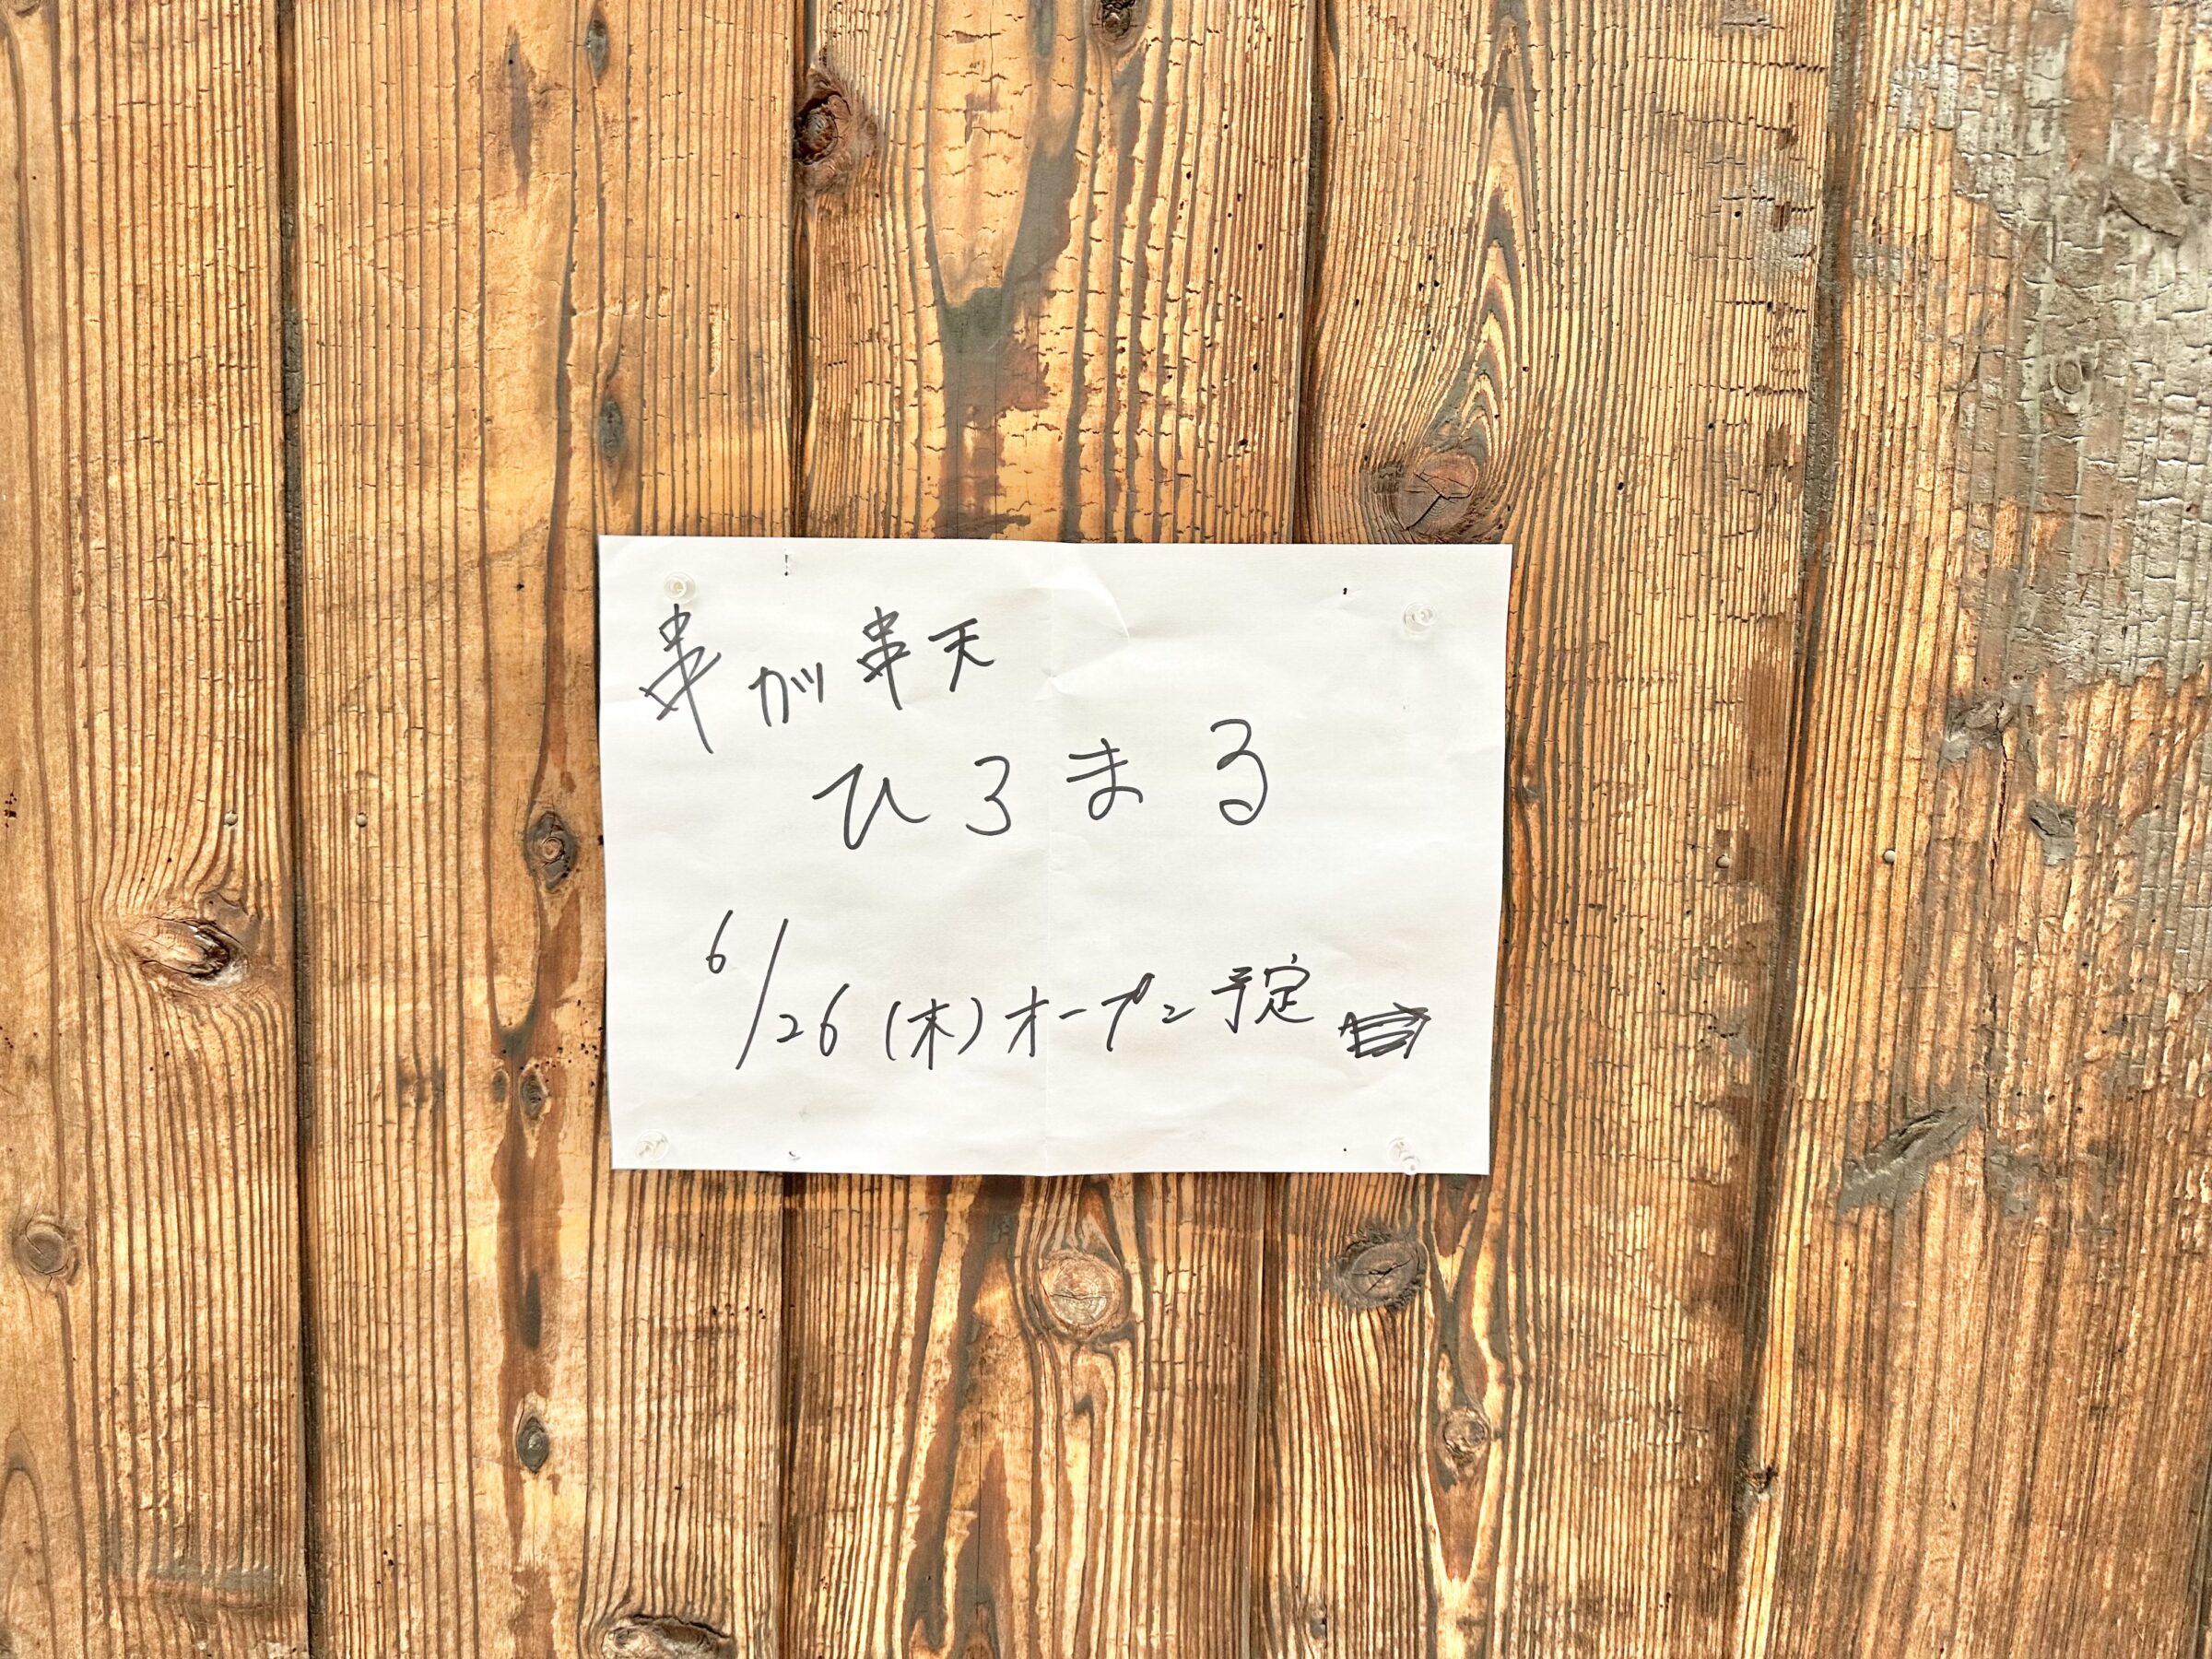 串かツ串天
ひろまる
6/26(木)オープン予定